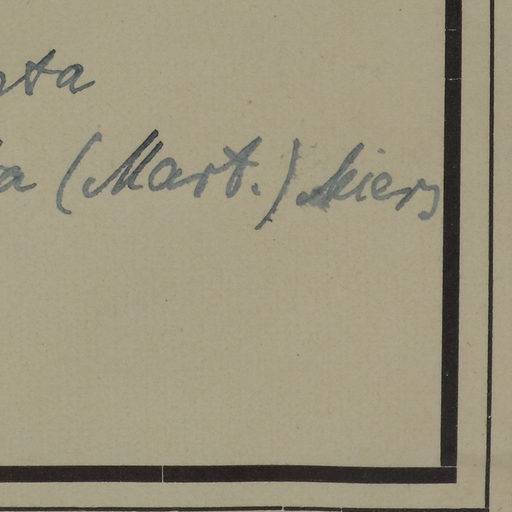 sta
a (Mart.) Miers